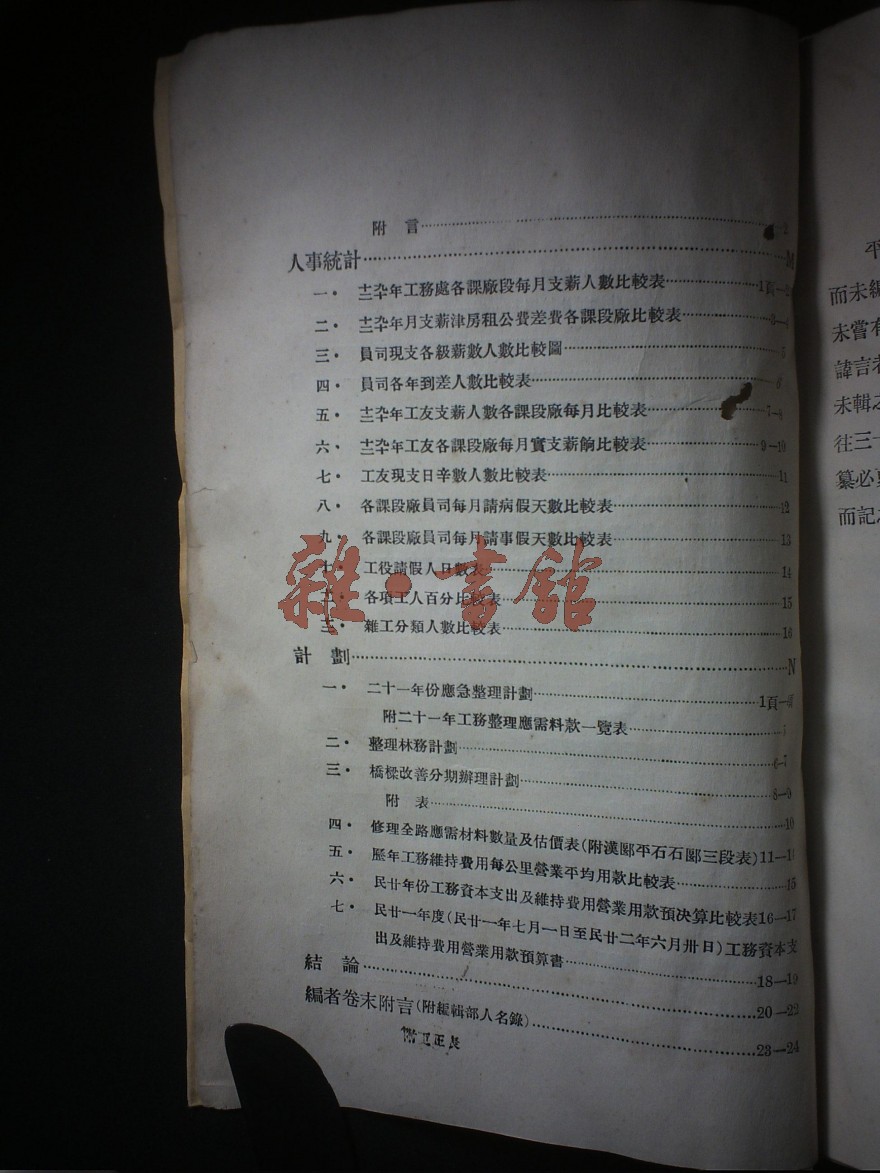 附 言
人事統計……M
一· 年工務處各課廠段每月支薪人數比較表……1頁—2
二· 年月支薪津房租公費差費各課段廠比較表……3—4
三· 員司現支各級薪數人數比較圖……5
四· 員司各年到差人數比較表……6
五· 年工友支薪人數各課段廠每月比較表……7—8
六· 年工友各課段廠每月實支薪餉比較表……9—10
七· 工友現支日辛數人數比較表……11
八· 各課段廠員司每月請病假天數比較表……12
九· 各課段廠員司每月請事假天數比較表……13
十· 工役請假人日數表……14
各項工人百分比較表……15
雜工分類人數比較表……16
計 劃……N
一· 二十一年份應急整理計劃……1頁—
附二十一年工務整理應需料款一覽表
二· 整理林務計劃……6—7
三· 橋樑改善分期辦理計劃……8—9
附 表……10
四· 修理全路應需材料數量及估價表(附漢郾平石石郾三段表)11—1
五· 歷年工務維持費用每公里營業平均用款比較表……15
六· 民廿年份工務資本支出及維持費用營業用款預決算比較表16—17
七· 民廿一年度(民廿一年七月一日至民廿二年六月卅日)工務資本支
出及維持費用營業用款預算書……18—19
結 論……20—22
編者卷末附言(附編輯部人名錄)……23—24
雜·書館
平
而未編
未嘗有
諱言者
未輯之
往三十
纂必
而記